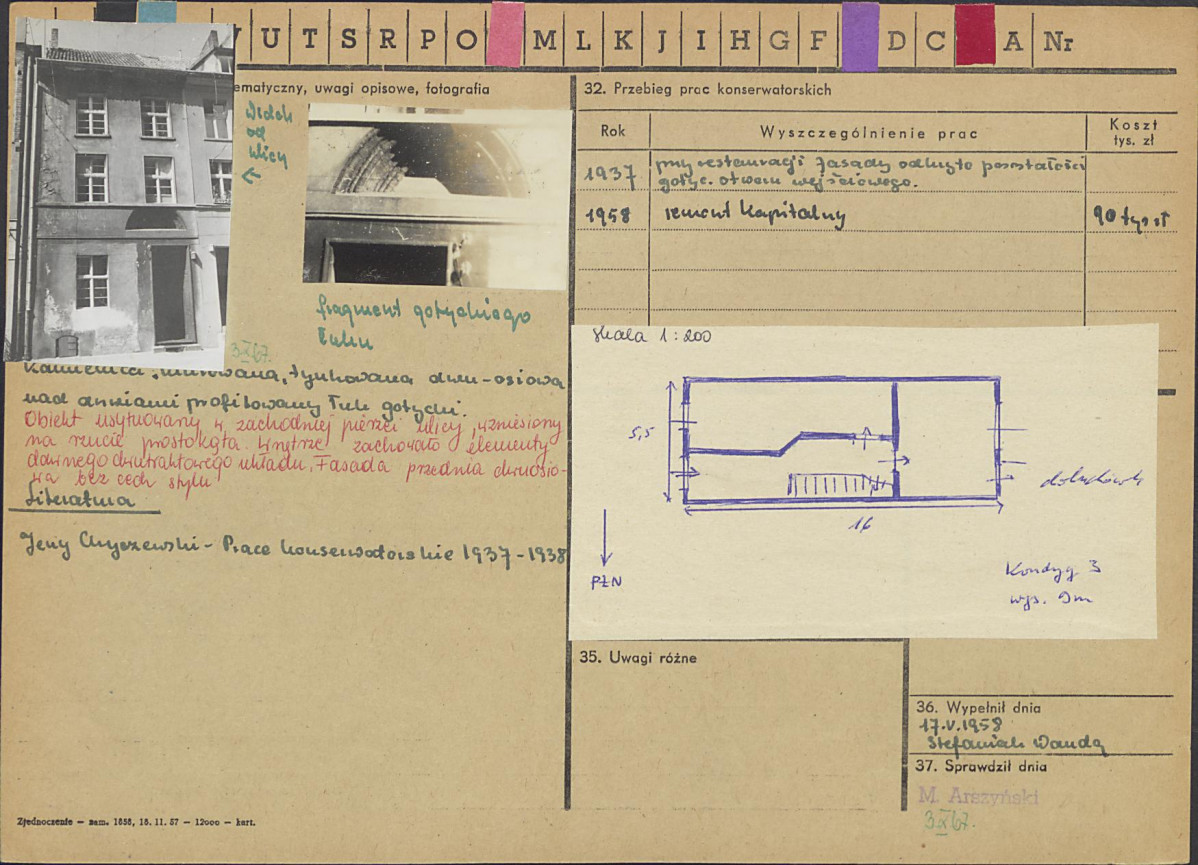 U T S R P O M L K J I H G F D C A Nr
ematyczny, uwagi opisowe, fotografia
Widok
od
ulicy
fragment gotyckiego
łuku
3 X 67.
Kamienica, murowana, tynkowana dwu-osiowa
nad drzwiami profilowany łuk gotycki.
Obiekt usytuowany w zachodniej pierzei ulicy, wzniesiony
na rzucie prostokąta. Wnętrze zachowało elementy
dawnego dwutraktowego układu. Fasada przednia dwuosio-
wa bez cech stylu
Literatura
Jerzy Chyczewski - Prace konserwatorskie 1937-1938
32. Przebieg prac konserwatorskich
Rok Wyszczególnienie prac Koszt
tys. zł
1937 przy restauracji fasady odkryto pozostałości
gotyc. otworu wejściowego.
1958 remont kapitalny 90 tys zł
skala 1:200
5,5
16
PŁN
Kondyg 3
wys. 9m
35. Uwagi różne
36. Wypełnił dnia
17.V.1958
Stefaniak Wanda
37. Sprawdził dnia
M. Arszyński
3 X 67.
Zjednoczenie — zam. 1858, 18. 11. 57 — 12000 — kart.